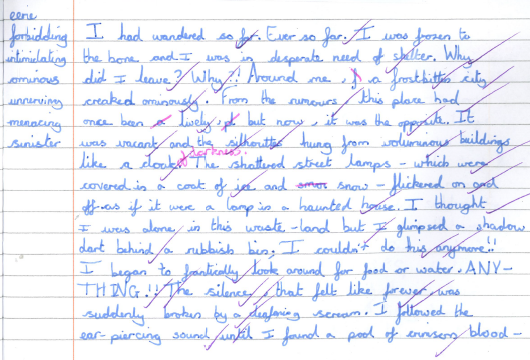 eerie
forbidding
intimidating
ominous
unnerving
menacing
sinister
I had wandered so far. Ever so far. I was frozen to
the bone and I was in desperate need of shelter. Why
did I leave? Why?! Around me, a frostbitten city
creaked ominously. From the rumours, this place had
once been a lively, but now, it was the opposite. It
was vacant and the silhouttes hung from voluminous buildings
like a cloak of darkness. The shattered street lamps - which were
covered in a coat of ice and snow - flickered on and
off as if it were a lamp in a haunted house. I thought
I was alone in this waste-land but I glimpsed a shadow
dart behind a rubbish bin. I couldn't do this anymore!!
I began to frantically look around for food or water. ANY-
THING!! The silence, that felt like forever, was
suddenly broken by a deafening scream. I followed the
ear-piercing sound until I found a pool of blood -